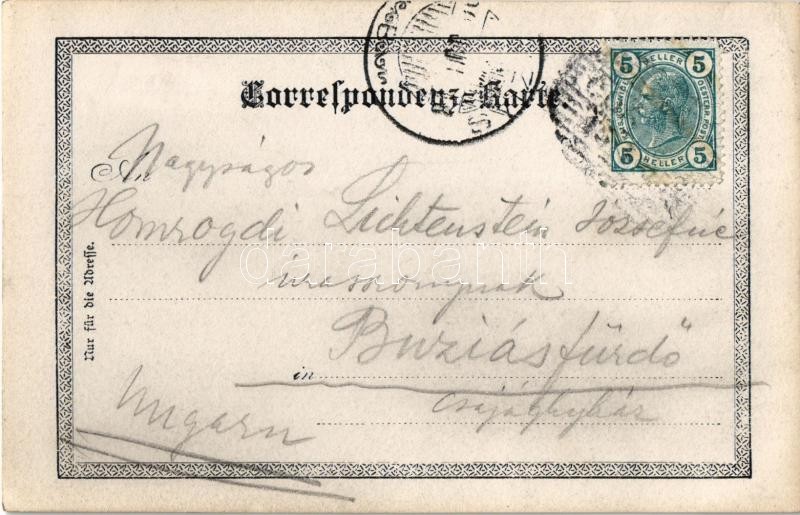 Correspondenz-Karte.
5 HELLER 5
5 HELLER 5
An
Nagyságos
Homrogdi Lichtenstein Józsefné
urasszonynak
Buziásfürdő
in
Ungarn
Nur für die Adresse.
databanth